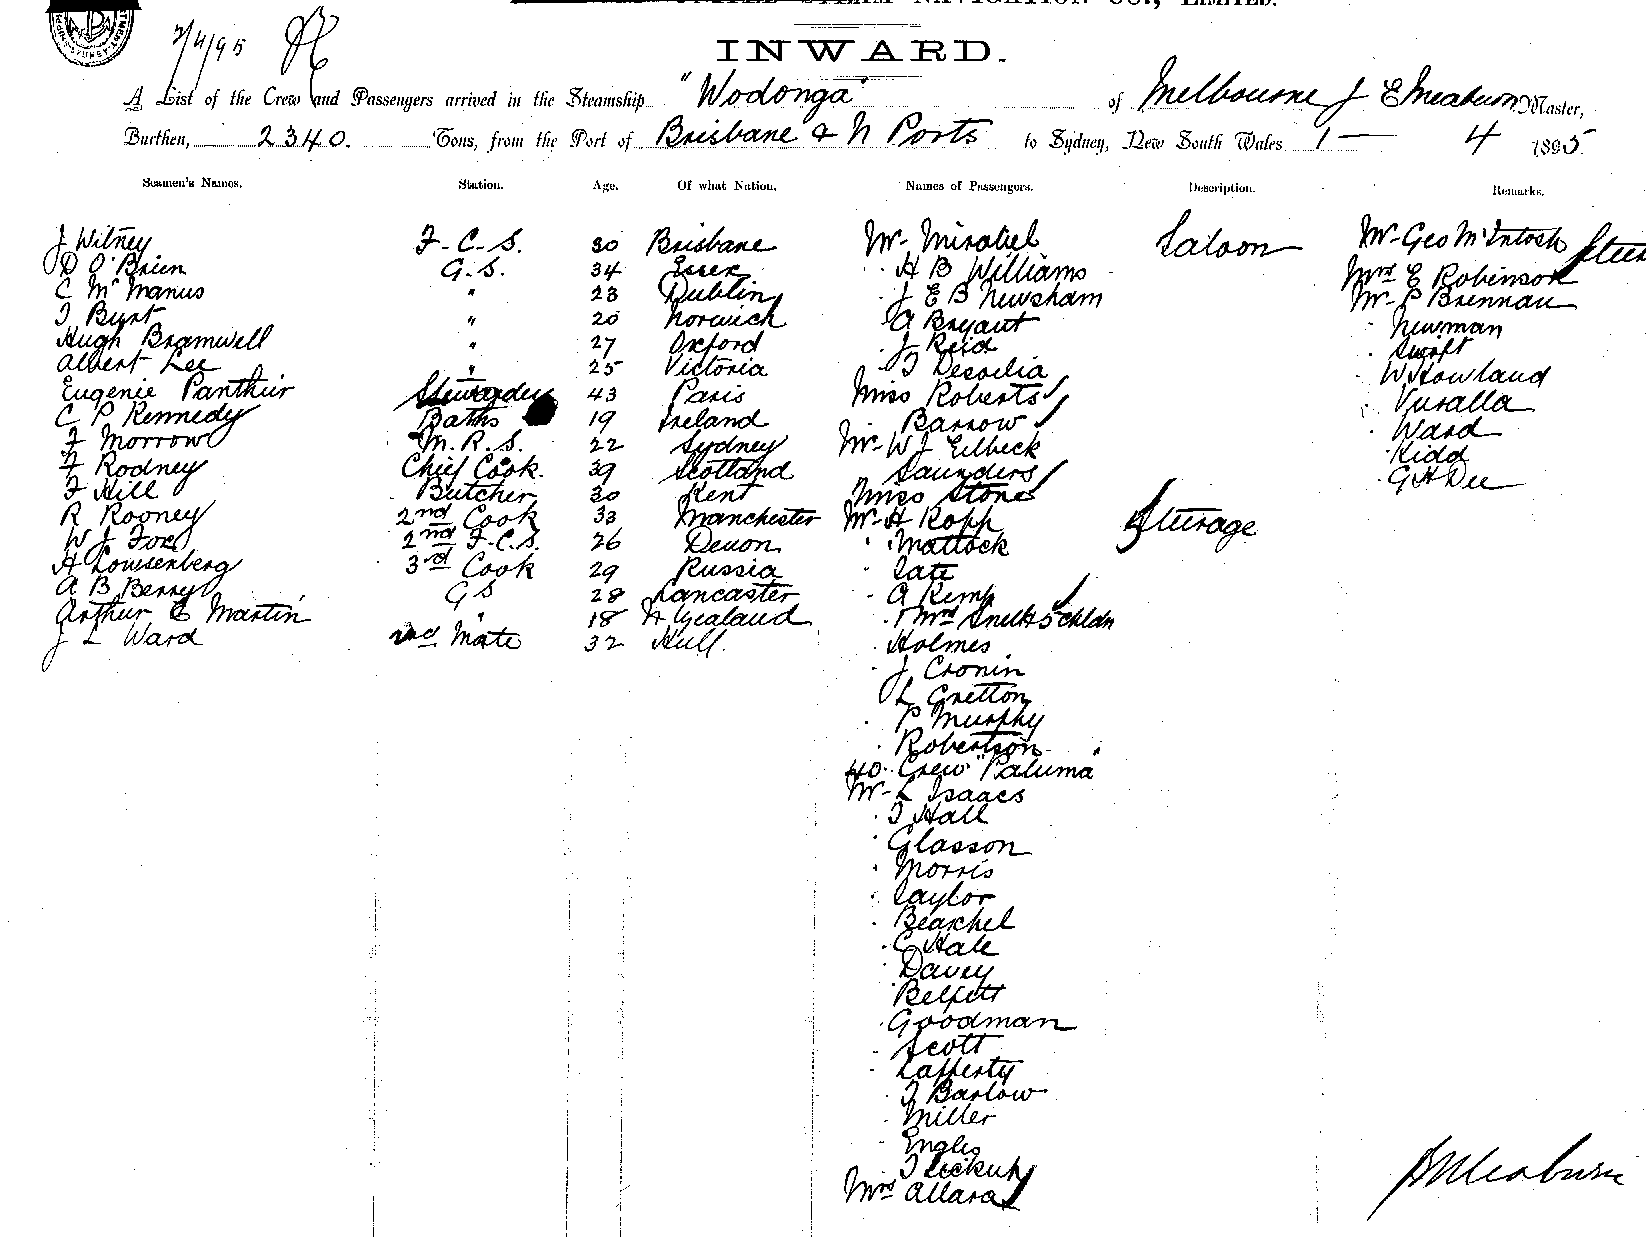 NAVIGATION CO., LIMITED.
2/4/95
INWARD.
A List of the Crew and Passengers arrived in the Steamship "Wodonga" of Melbourne J E Meaburn Master,
Burthen, 2340. Tons, from the Port of Brisbane & N Ports to Sydney, New South Wales 1 — 4 1895
Seamen's Names. Station. Age. Of what Nation. Names of Passengers. Description. Remarks.
J Witney F.C.S. 30 Brisbane Mr. Mirabel Saloon Mr. Geo McIntosh
D O'Brien G.S. 34 Essex " H B Williams Mrs E Robinson
C McManus " 23 Dublin " J E B Newsham Mr. P Brennan
T Burt " 20 Norwich " A Bryant " Newman
Hugh Bramwell " 27 Oxford " J Reid " Swift
Albert Lee " 25 Victoria " T Desailia " W Rowland
Eugenie Panthur Stewardess 43 Paris Miss Roberts " Vuralla
C P Kennedy Baths 19 Ireland " Barrow " Ward
F Morrow M.R.S. 22 Sydney Mr. W J Eilbeck " Kidd
F Rodney Chief Cook. 39 Scotland " Saunders " G H Dee
F Hill Butcher 30 Kent Miss Stone
R Rooney 2nd Cook 33 Manchester Mr. H Kopp Steerage
W J Ford 2nd F.C.S. 26 Devon " Mattock
H Lowsenberg 3rd Cook 29 Russia " Tate
A B Berry GS 28 Lancaster " A Kemp
Arthur E Martin " 18 N Zealand " Mrs 5 chldn
J L Ward 2nd Mate 32 Hull. " Holmes
" J Cronin
" L Gretton
" P Murphy
" Robertson
40 Crew "Paluma"
Mr. L Isaacs
" T Hall
" Glasson
" Morris
" Taylor
" Bearchel
" C Hale
" Davey
" Belfitt
" Goodman
" Scott
" Lafferty
" T Barlow
" Miller
" Engles
" T
Mrs Allara
Meaburn